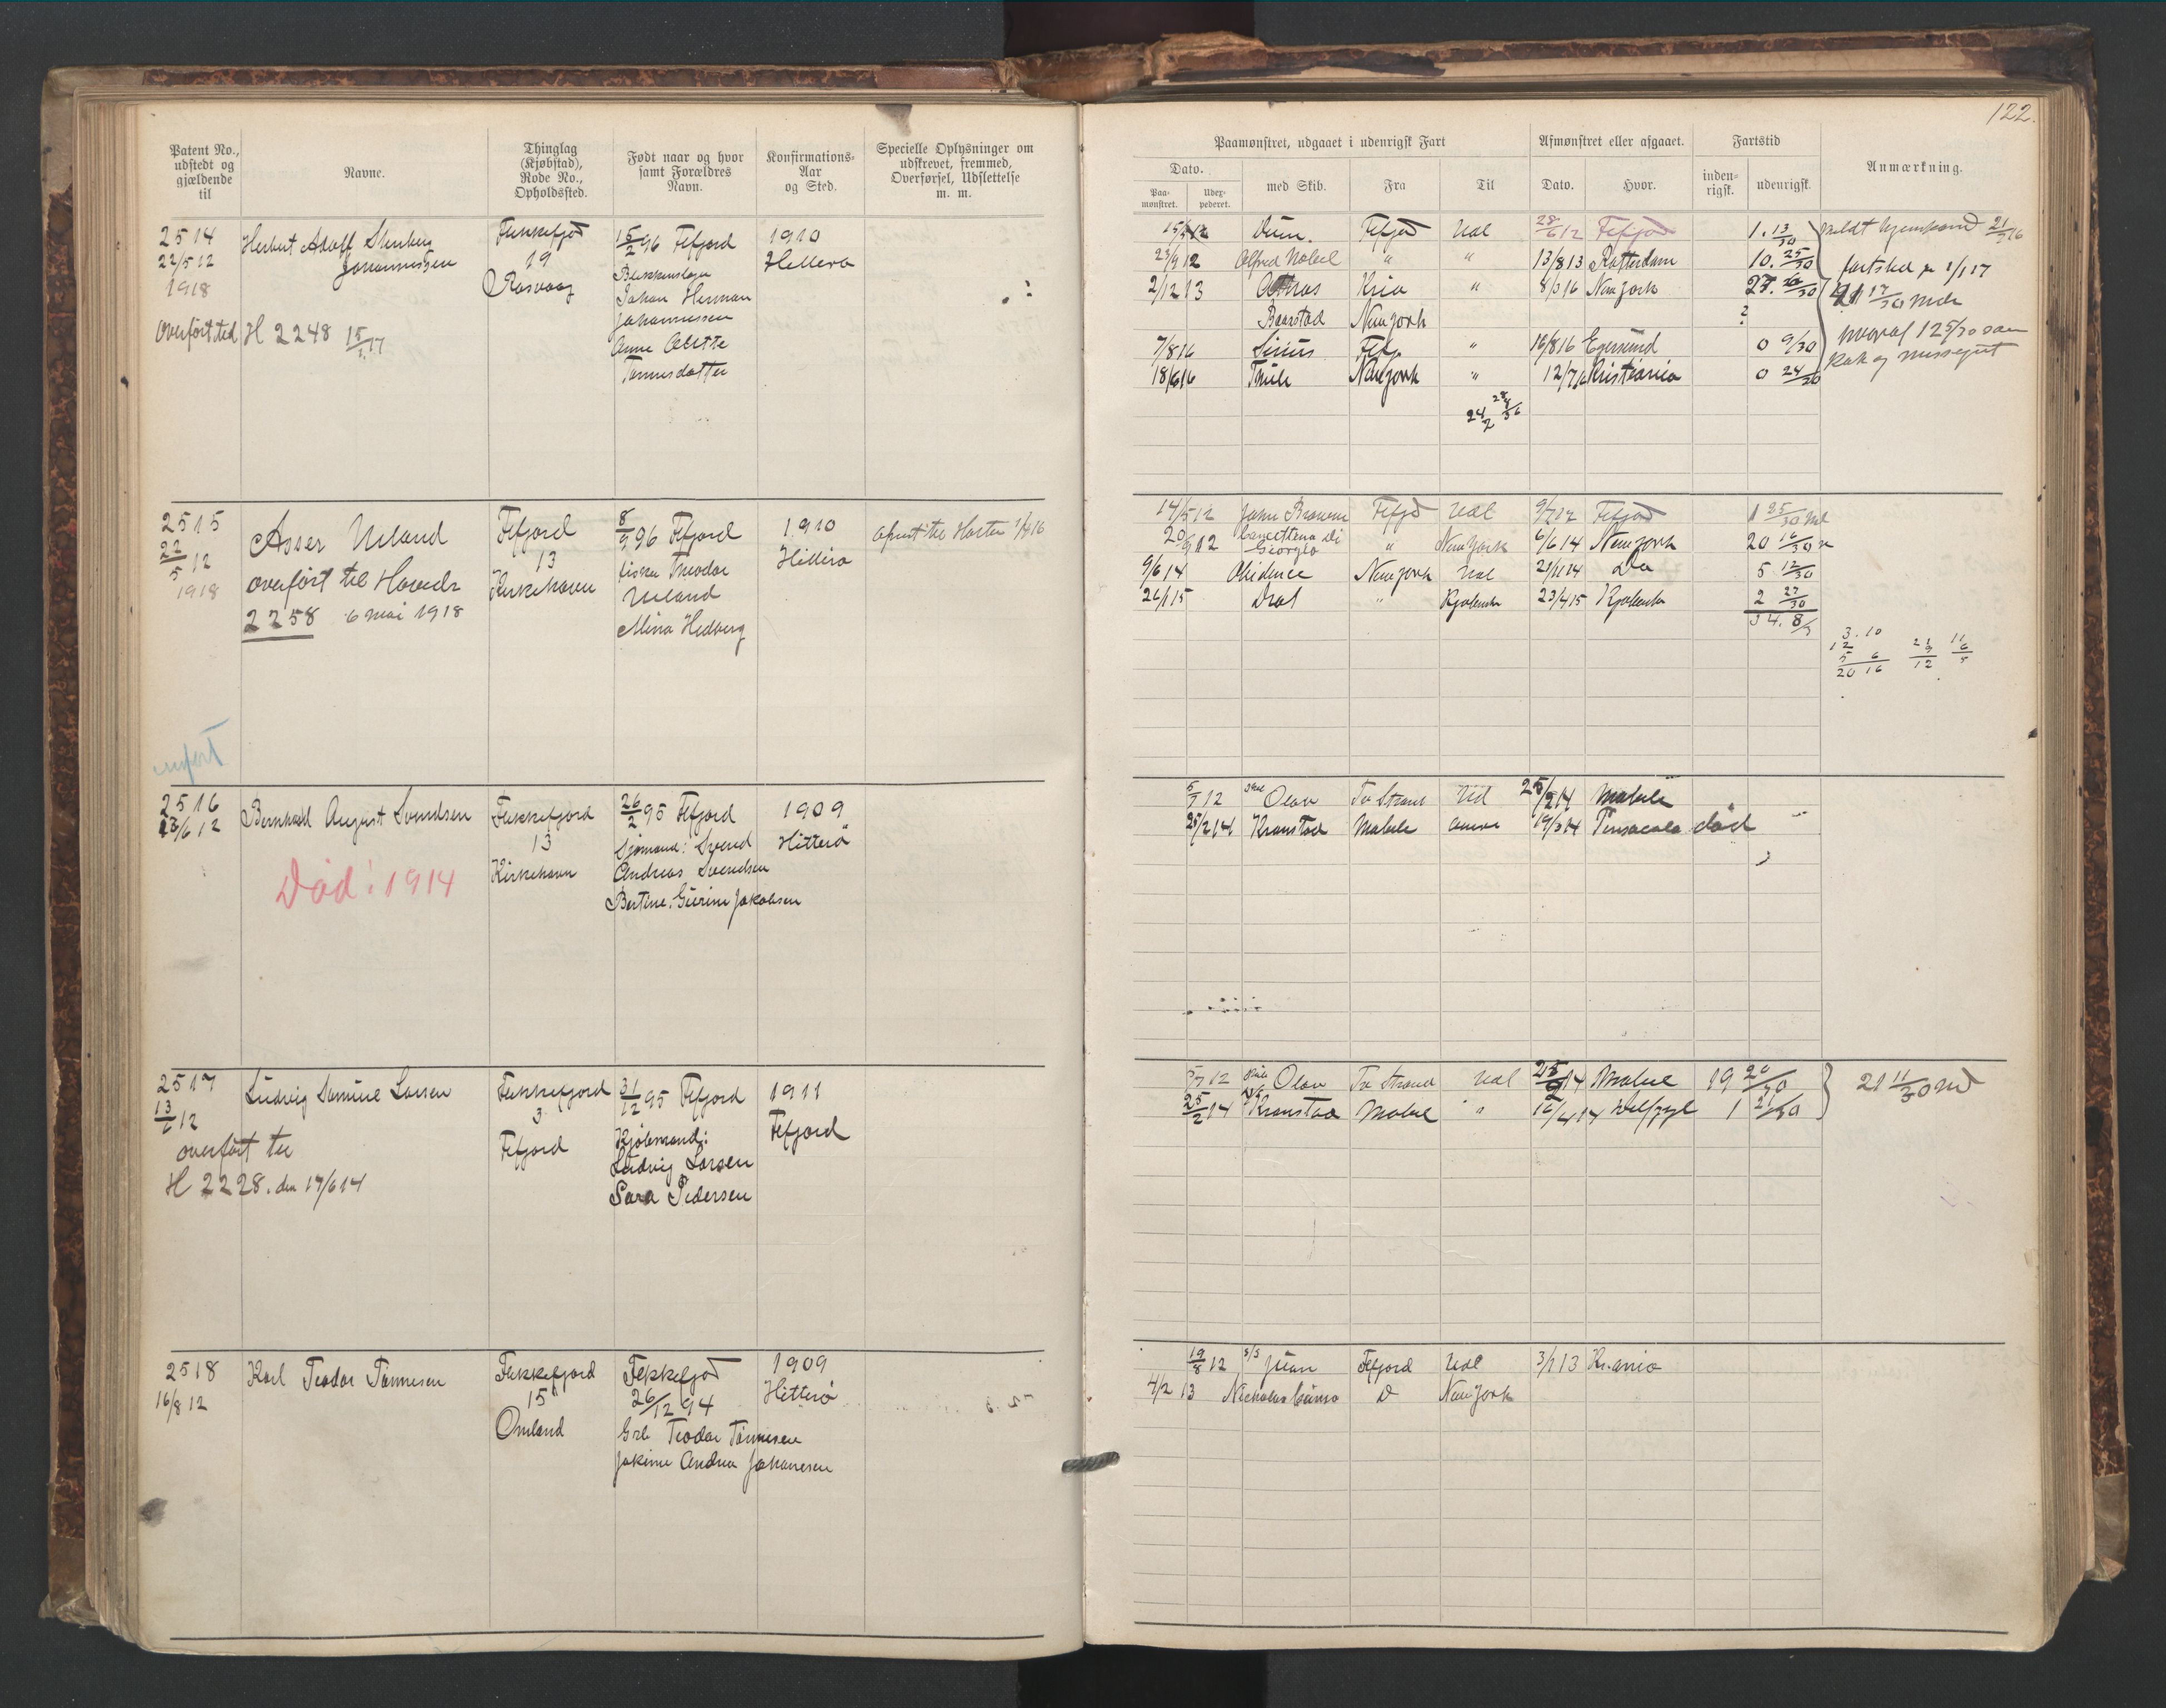 122.
Patent No., udstedt og gjældende til
Navne.
Thinglag (Kjøbstad), Rode No., Opholdssted.
Født naar og hvor samt Forældres Navn.
Konfirmations-Aar og Sted.
Specielle Oplysninger om udskrevet, fremmed, Overførsel, Udslettelse m. m.
Paamønstret, udgaaet i udenrigsk Fart
Dato.
Paa-mønstret.
Udex-pederet.
med Skib.
Fra
Til
Afmønstret eller afgaaet.
Dato.
Hvor.
Fartstid
inden-rigsk.
udenrigsk.
Anmærkning.
2514
22/5 12
1918
Overført ted H 2248 15/1 17
Herbert Adolf Stenberg
Johannessen
Flekkefjord
19
Rasvaag
15/2 96 Fefjord
Johan Herman
Johannessen
Anne Oletta
Tønnesdatter
1910
Hitterø
Fefjord Udl 28/6 12 Fefjord 1. 13/30
23/9 12 Alfred Nobel " " 13/8 13 Rotterdam 10. 25/30
2/12 13 Kria " 8/3 16 New York 27. 26/30
Baarstad New York ?
7/8 16 Sirius Fefj " 16/8 16 Egersund 0 9/30
18/6 16 Thule New York " 12/7 16 Kristiania 0 24/30
meldt hjemkomst 21/3 16
fartstid pr 1/1 17
41 17/30 mdr
hvoraf 1 25/30 som
kok og messegut
2515
22/5 12
1918
Asser Ueland
overført til Hovedr
2258 6 mai 1918
Fefjord
13
Kirkehavn
8/9 96 Fefjord
fisker Theodor
Ueland
Mina Hedberg
1910
Hitterø
14/5 12 John Brown Fefjd Udl 9/7 12 Fefjord 1 25/30 md
20/9 12 Concettina di Giorgio " New York 6/6 14 New York 20 16/30
9/6 14 New York Udl 21/11 14 Do 5 12/30
26/1 15 " Kjøbenh 23/4 15 Kjøbenh 2 27/30
3.10
12
5 6
20 16
21
9
12
11
6
5
2516
13/6 12
Bernhard August Svendsen
Død: 1914
Flekkefjord
13
Kirkehavn
26/2 95 Fefjord
Sjømand: Svend
Andreas Svendsen
Bertine Gurine Jakobsen
1909
Hitterø
5/7 12 Olav Tv Strand Udl 25/2 14 Mobile
25/2 14 Kronstad Mobile 19/3 14 Pensacola død
2517
13/6 12
overført til
H 2228. den 17/6 14
Ludvig Samuel Larsen
Flekkefjord
3
Fefjord
31/12 95 Fefjord
Kjøbmand:
Ludvig Larsen
Sara Pedersen
1911
Fefjord
5/7 12 Olav Tv Strand Udl 25/2 14 Mobile 19 20/30
25/2 14 Kronstad Mobile " 16/4 14 Delfzyl 1 21/30
21 11/30 md
2518
16/8 12
Karl Teodor Tønnesen
Flekkefjord
15
Omland
Flekkefjod
26/12 94
Teodor Tønnesen
Jakine Andrea Johanesen
1909
Hitterø
19/8 12 S/S Juan Fefjord Udl 3/1 13 Kr.ania
4/2 13 Nicholas Cuneo D New York